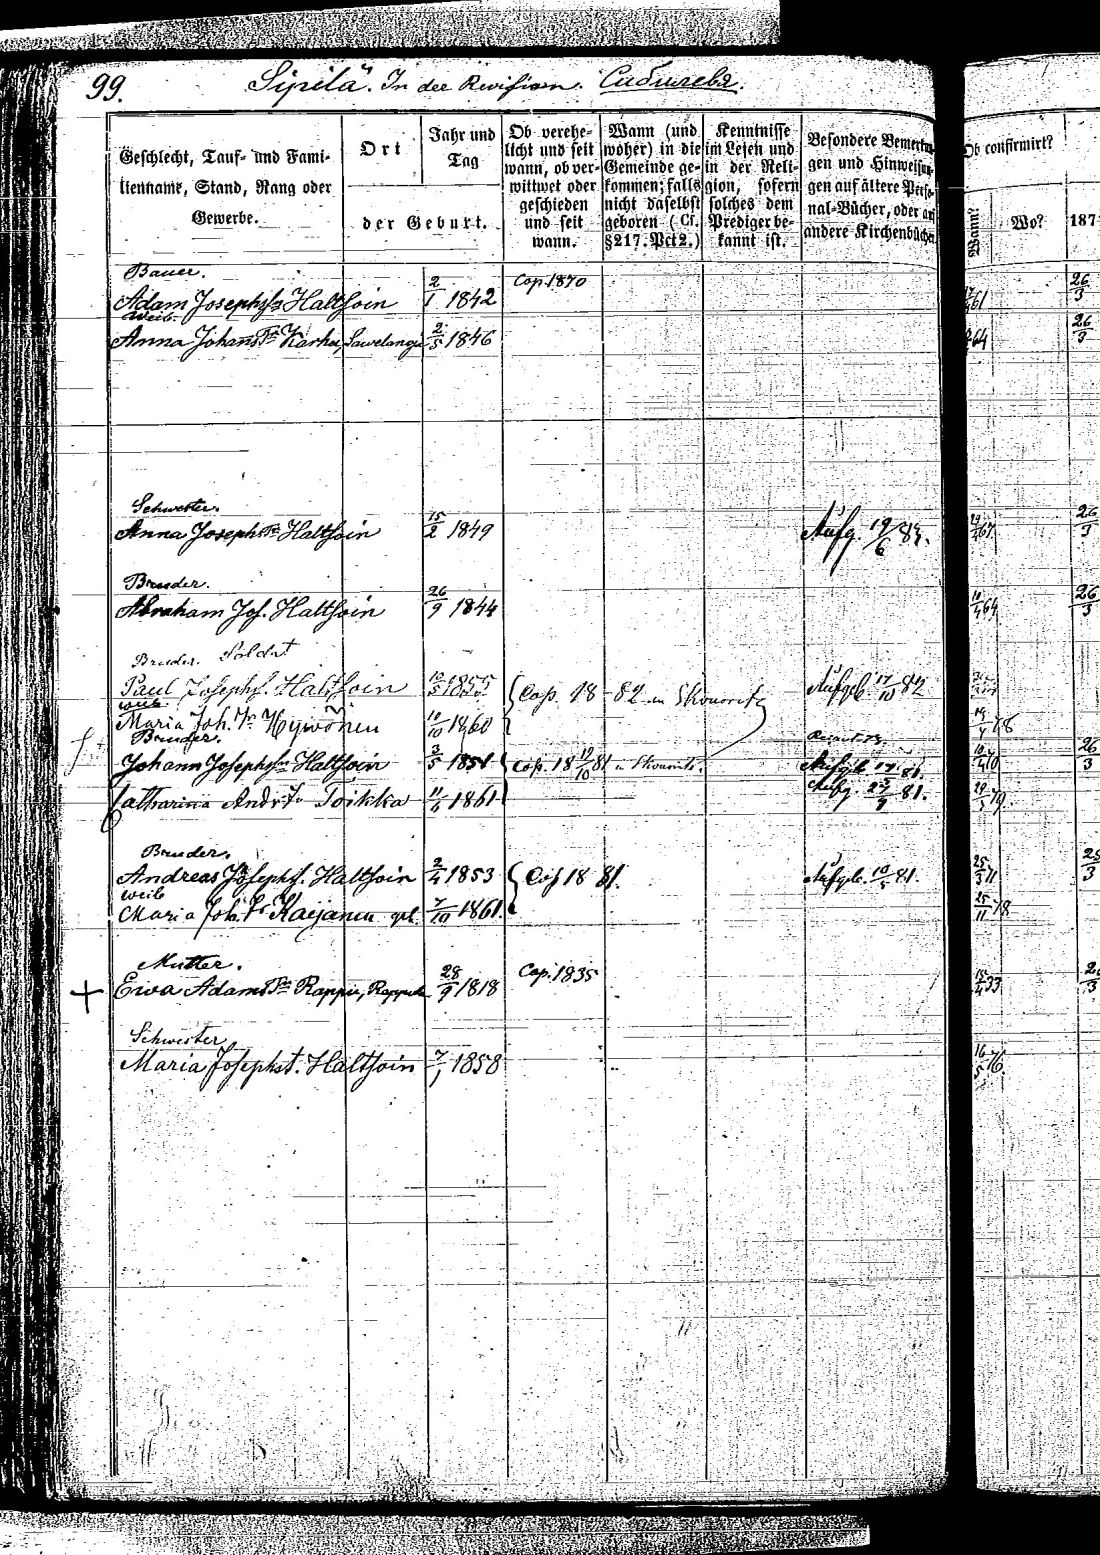 99. Sipilä. In der Revision. Сибилева.
Geschlecht, Tauf- und Familienname, Stand, Rang oder Gewerbe.
Ort
Jahr und Tag
der Geburt.
Ob verehelicht und seit wann, ob verwittwet oder geschieden und seit wann.
Wann (und woher) in die Gemeinde gekommen; falls nicht daselbst geboren (Cf. §217. Pct 2.)
Kenntnisse im Lesen und in der Religion, sofern solches dem Prediger bekannt ist.
Besondere Bemerkungen und Hinweisungen auf ältere Personal-Bücher, oder an andere Kirchenbücher
Ob confirmirt?
Wann?
Wo?
187
Bauer.
Adam Josephs. Haltsoin 2/1 1842 Cop. 1870 61 26/3
Weib.
Anna Johans Tr. Karhu, 2/5 1846 64 26/3
Schwester.
Anna Josephs Tr. Haltsoin 15/2 1849 Aufg. 19/6 67 26/3
Bruder.
Abraham Jos. Haltsoin 26/9 1844 10/4 64 26/3
Bruder. Soldat
Paul Josephs. Haltsoin 1855 Cop. 18-82 in Skworitz Aufgeb. 17/10 82
Weib
Maria Joh. Tr. Hywönen 10/10 1860 78
Bruder.
Johann Josephs. Haltsoin 3/5 1851 Cop. 18 19/10 81 Aufgeb. 81. 26/3
Catharina Andr. Tr. Toikka 1861 Aufg. 81. 79
Bruder.
Andreas Josephs. Haltsoin 2/4 1853 Cop 18 81. Aufgeb. 10/5 81. 25/3 71 25/3
Weib
Maria Joh. Tr. Kaijanen 7/10 1861. 25/11 78
Mutter.
Ewa Adams Tr. Rappu, 28/9 1818 Cop. 1835 33
Schwester
Maria Josephst. Haltsoin 7/1 1858 16/5 76.